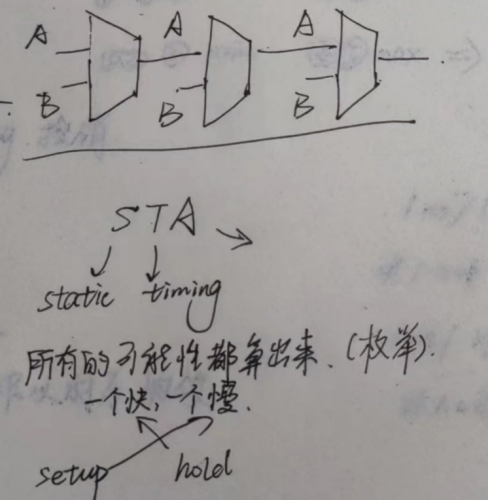 A A A
B B B
STA
static timing
所有的可能性都算出来.(枚举).
一个快,一个慢.
setup hold